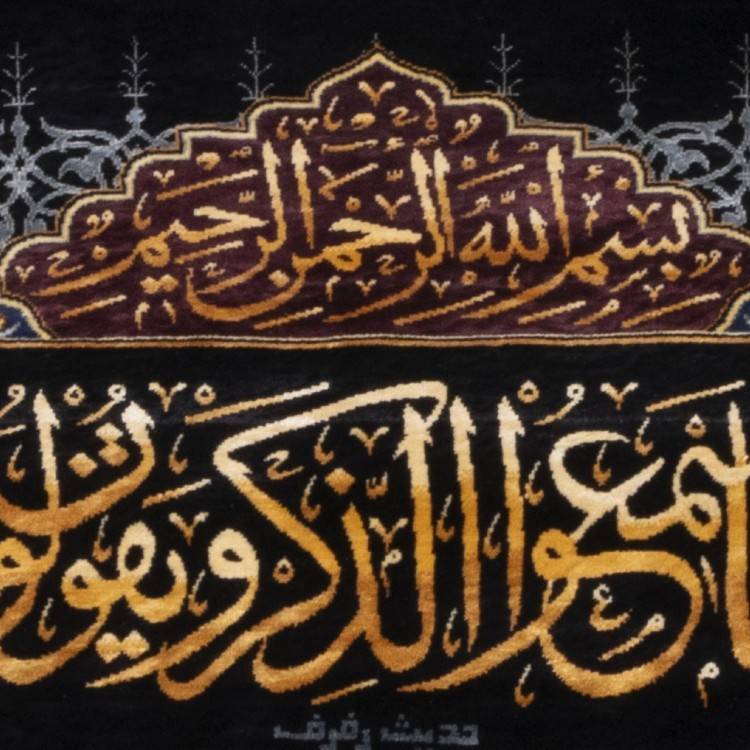 بسم الله الرحمن الرحيم
سمعوا الذكر